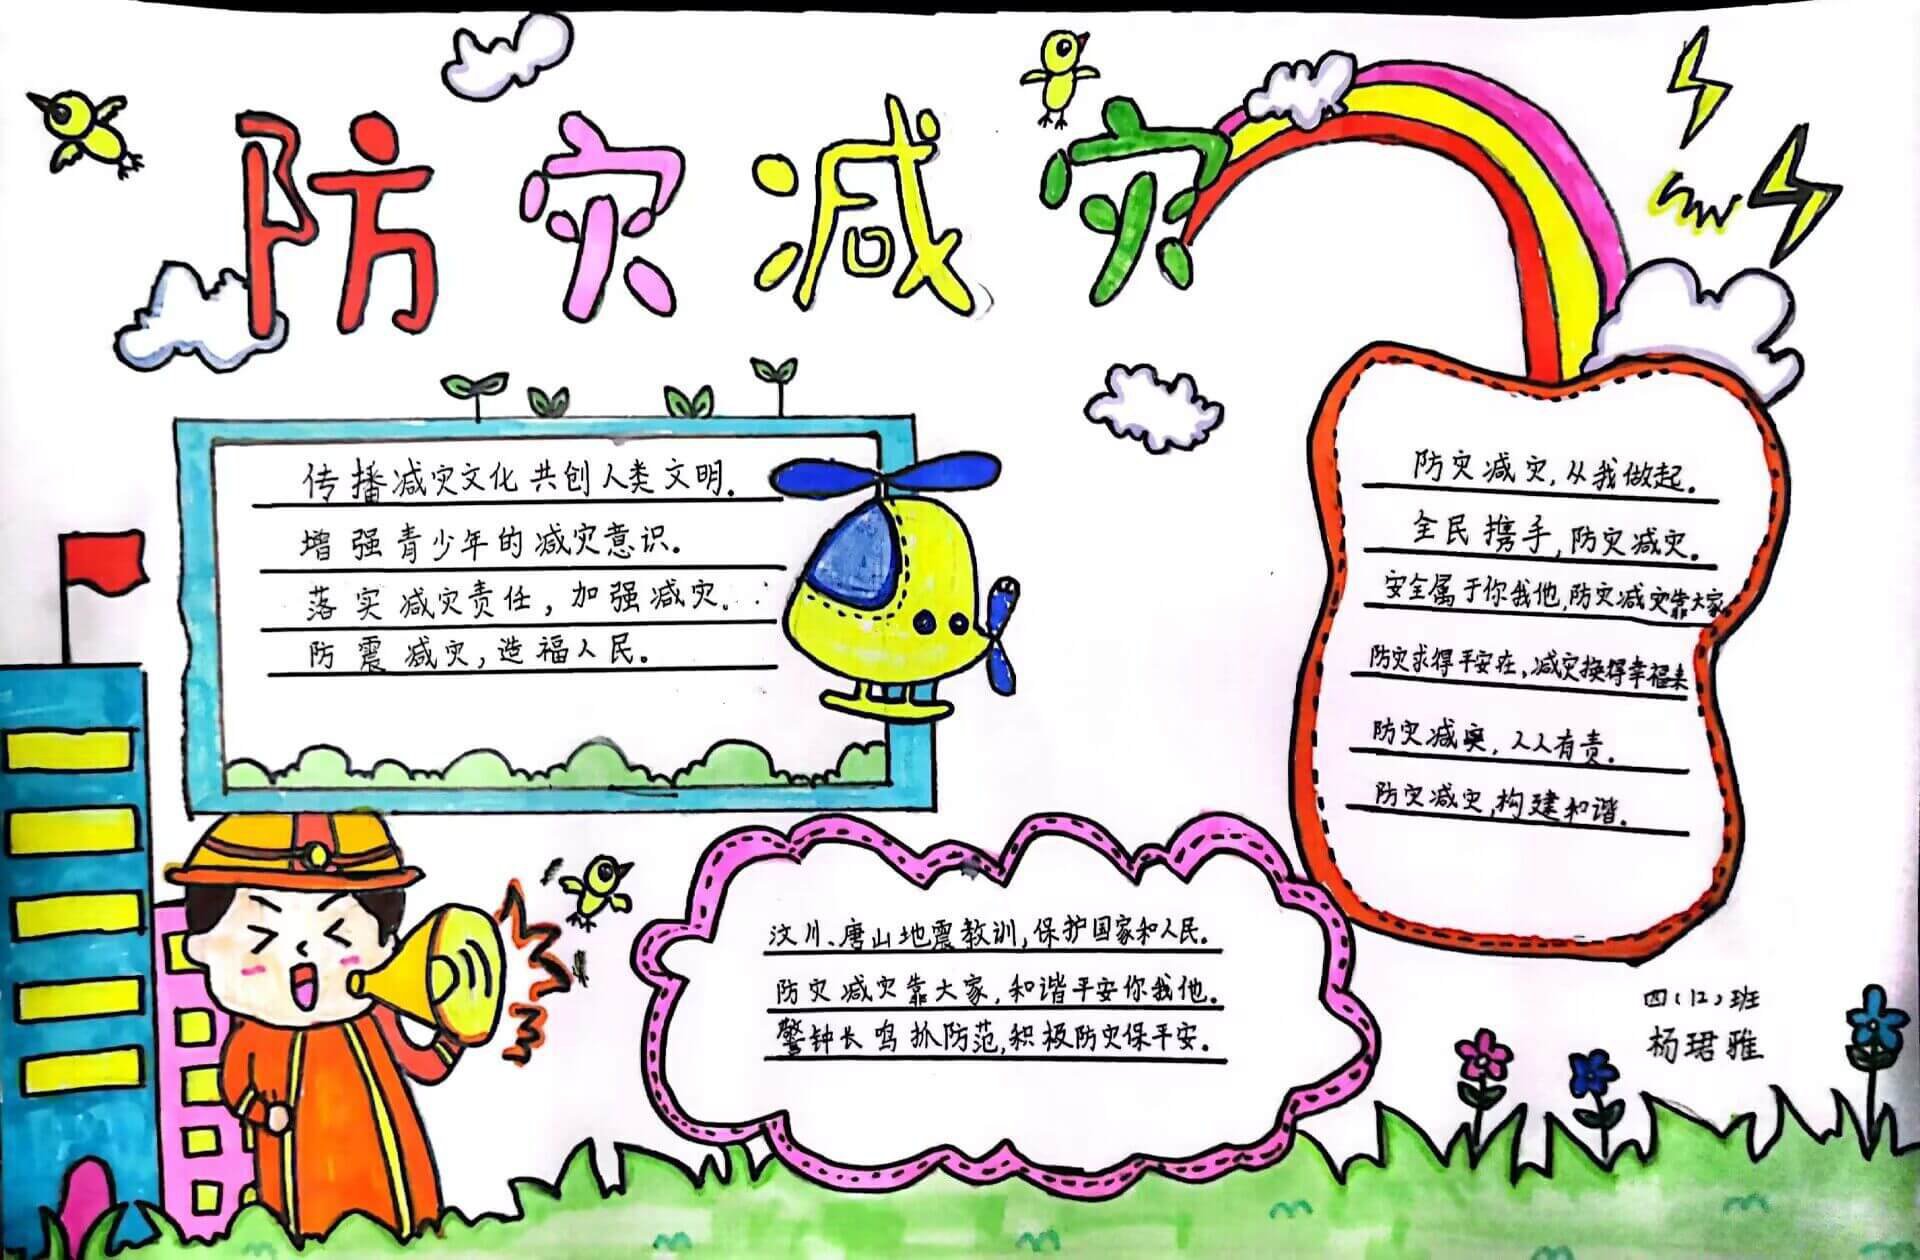 防灾减灾
传播减灾文化共创人类文明.
增强青少年的减灾意识.
落实减灾责任,加强减灾.
防震减灾,造福人民.
防灾减灾,从我做起.
全民携手,防灾减灾.
安全属于你我他,防灾减灾靠大家.
防灾求得平安在,减灾换得幸福来
防灾减灾,人人有责.
防灾减灾,构建和谐.
汶川、唐山地震教训,保护国家和人民.
防灾减灾靠大家,和谐平安你我他.
警钟长鸣抓防范,积极防灾保平安.
四(12)班
杨珺雅